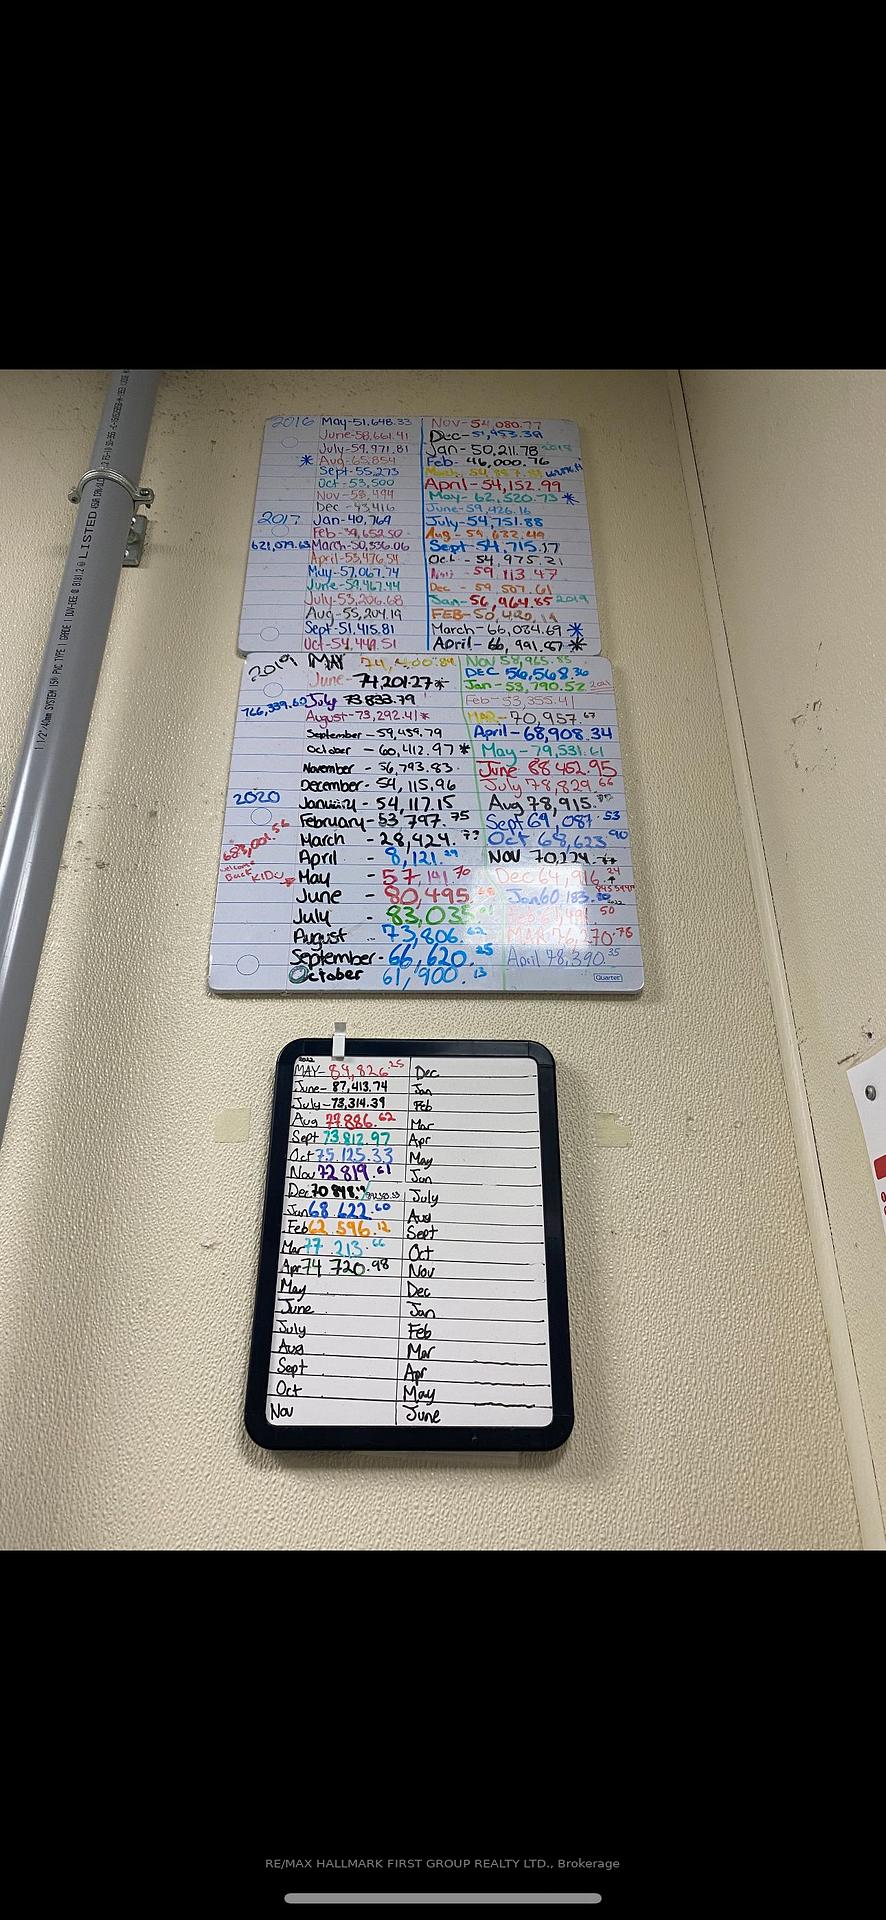 1 1/2"/40mm SYSTEM 15® PVC TYPE 1 GRADE 1 DWV-DEE @ B181.2 @ LISTED
2016 May-51,648.33
June-58,661.41
July-59,971.81
* Aug-65,854
Sept-55,273
Oct-53,500
Nov-53,494
Dec-43,416
2017 Jan-40,769
Feb-39,652.50
621,079.63 March-50,336.06
April-53,476.54
May-57,067.74
June-59,467.44
July-53,206.68
Aug-55,204.19
Sept-51,415.81
Oct-54,449.51
Nov-54,080.77
Dec-51,453.38
Jan-50,211.78 2018
Feb-46,000.76
March
April-54,152.99
May-62,520.73 *
June-59,426.16
July-54,751.88
Aug-54,632.49
Sept-54,715.17
Oct-54,975.21
59,113.47
Dec-59,507.61
Jan-56,964.85 2019
FEB-50,420.14
March-66,084.69 *
April-66,991.97 *
2019 MAY
June-74,201.27 *
766,339.62 July 73,833.79
August-73,292.41 *
September-59,459.79
October-60,412.97 *
November-56,793.83
December-54,115.96
2020 January-54,117.15
February-53,797.75
March-28,424.77
April-8,121.29
welcome Back KIDU May-57,141.70
June-80,495
July-83,035
August-73,806.62
September-66,620.25
October 61,900.13
Nov 58,965.85
DEC 56,568.36
Jan-53,790.52 2021
Feb-53,355.41
MAR-70,957.67
April-68,908.34
May-79,531.61
June 88 452.95
July 78,829.66
Aug 78,915
Sept 69,087.53
Oct 68,623.90
Nov 70,124
Dec 64,916.24
Jan 60,183
50
MAR 76,270.76
April 78,390.35
Quartet
2022
MAY-84,826.25
June-87,413.74
July-73,314.39
Aug 77886.62
Sept 73 812.97
Oct 75,125.33
Nov 72 819.61
Dec 70 848
Jan 68 622.60
Feb 62 596.12
Mar 77 213.66
Apr 74 720.98
May
June
July
Aug
Sept
Oct
Nov
Dec
Jan
Feb
Mar
Apr
May
Jun
July
Aug
Sept
Oct
Nov
Dec
Jan
Feb
Mar
Apr
May
June
RE/MAX HALLMARK FIRST GROUP REALTY LTD., Brokerage